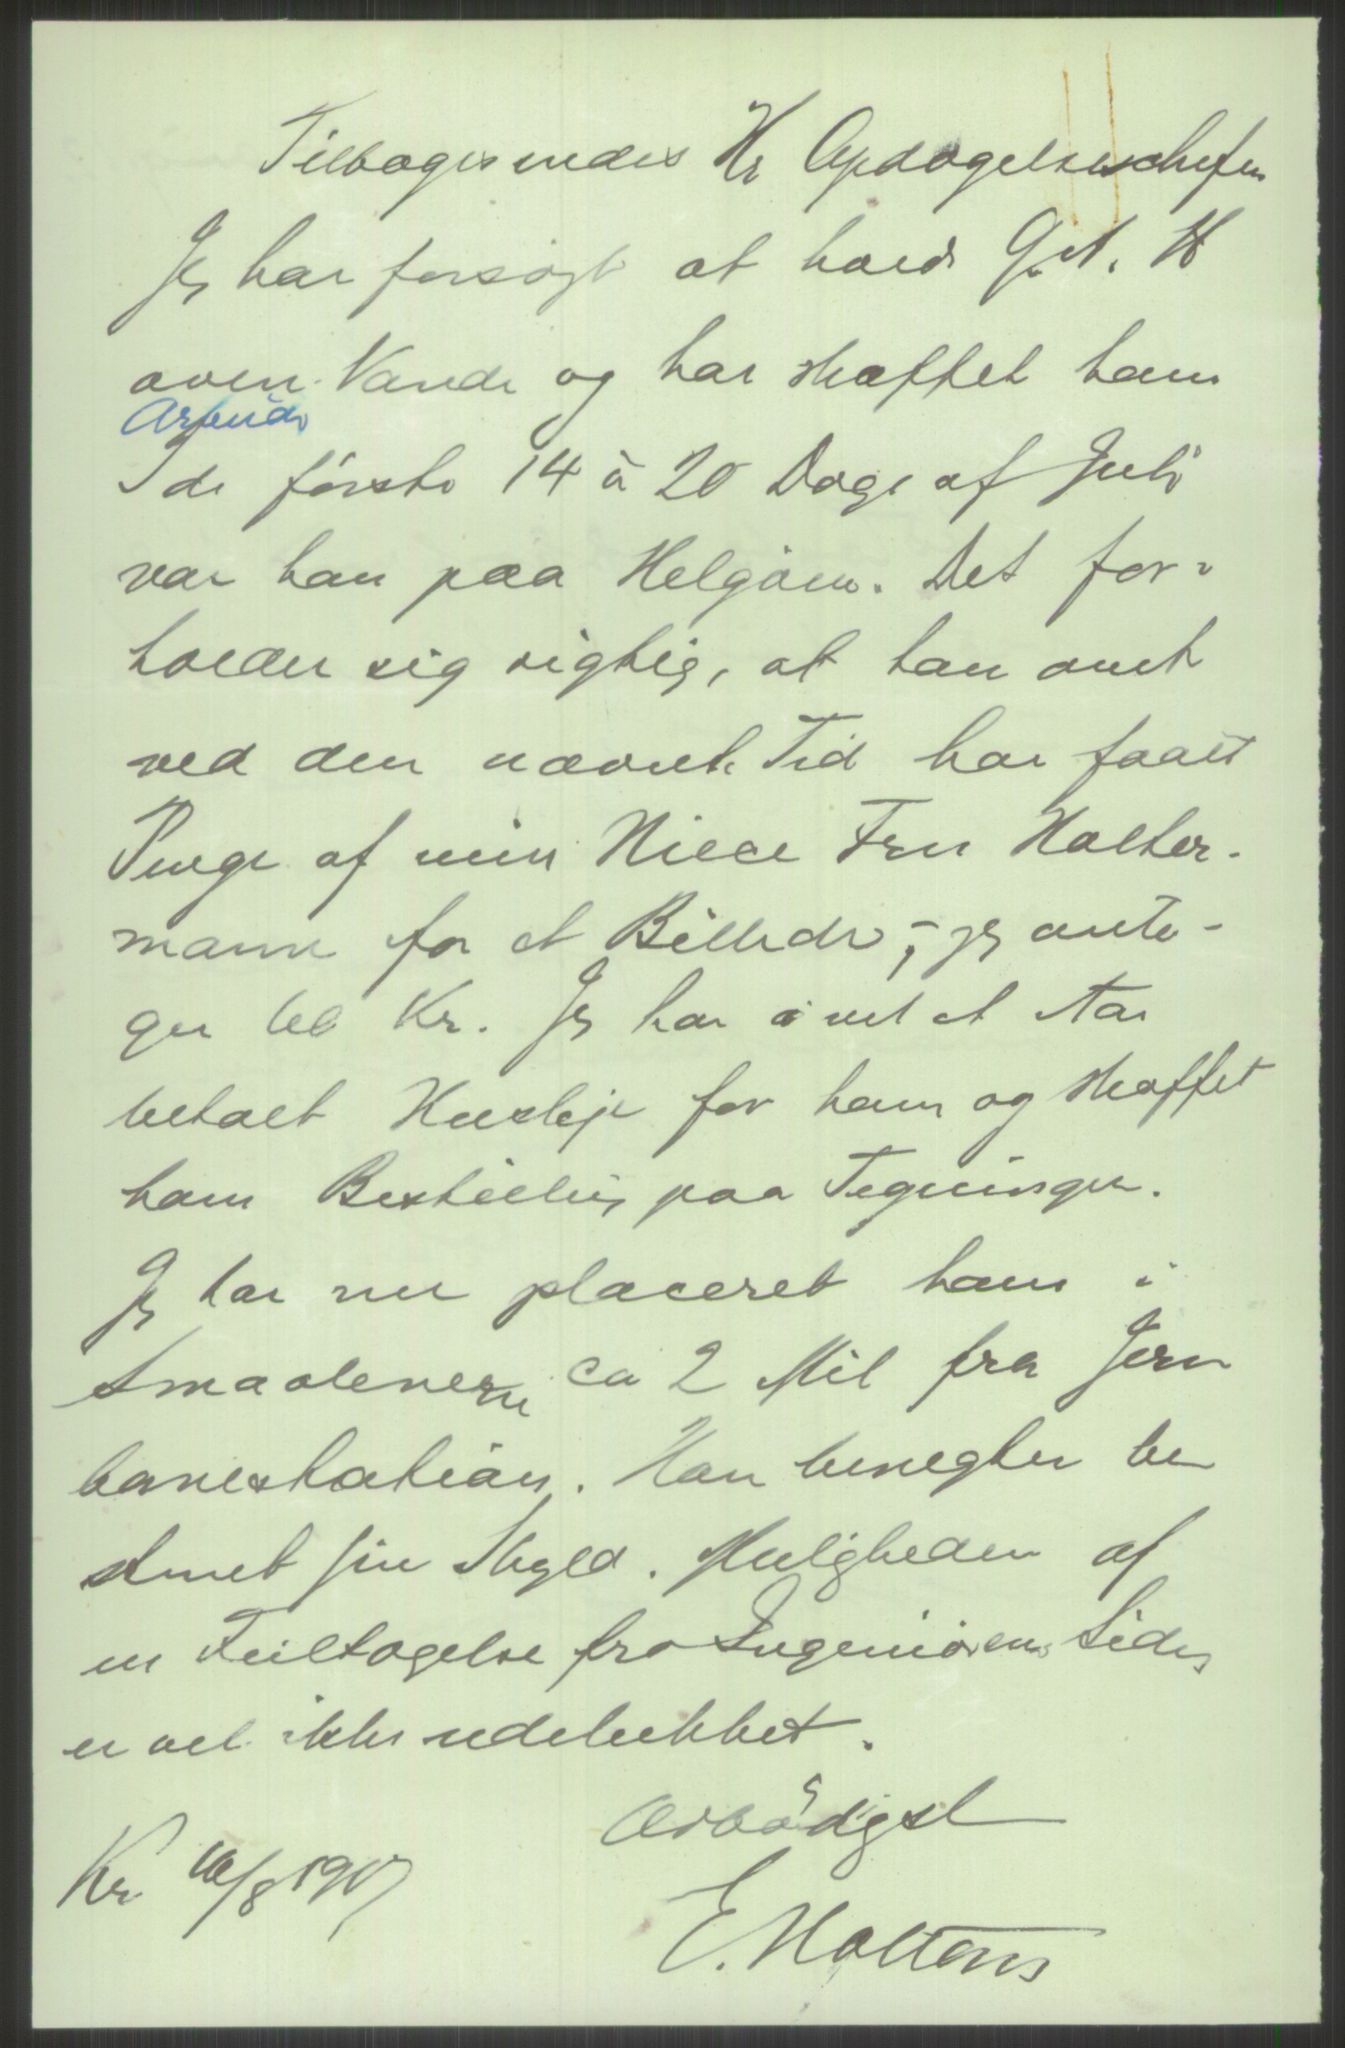 Tilbagesendes Hr Opdagelseschefen
Jeg har forsøgt at holde G. A. H
oven Vande og har skaffet ham
Arbeide
I de første 14 à 20 Dage af Juli
var han paa Helgøen. Det for-
holder sig rigtig, at han omtr
ved den nævnte Tid har faaet
Penge af min Niece Fru Holter-
mann for et Billede, - jeg anta-
ger Kr. Jeg har i vel et Aar
betalt Husleje for ham og skaffet
ham Bestilling paa Tegninger.
Jeg har nu placeret ham i
Smaalenene ca 2 Mil fra Jern
banestation. Han benegter be
stemt sin Skyld. Muligheden af
en Feiltagelse fra Ingeniørens Side
er vel ikke udelukket.
Ærbødigst
Kr. /8 1907
E. Moltens